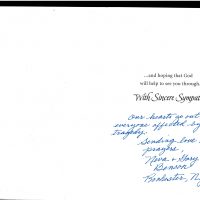 ...and hoping that God
will help to see you through.
With Sincere Sympat
Our hearts go out
everyone affected by
tragedy.
Sending love
prayers,
Neva & Gary
Benson
Rochester, N.Y